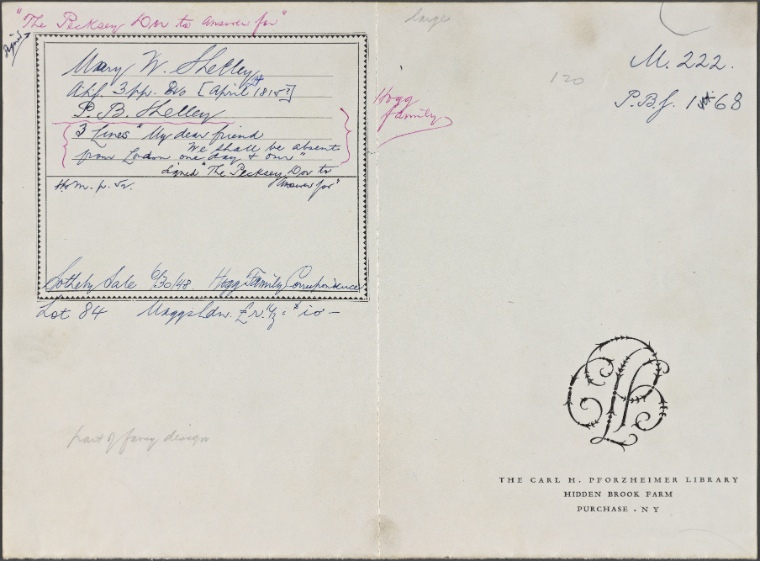 "The Pecksey Dor to answer for"
signed
Mary W. Shelley
3 pp. 8vo [April 1815?]
P. B. Shelley
3 Lines "My dear friend
We shall be absent
from London one day & our"
signed "The Pecksey Dor to
answer for"
Sotheby Sale 6/30/48 Hogg Family Correspondence
Lot 84 Maggs Ldn.
part of fancy design
large
120
M. 222.
P.B.S. 168
Hogg
family
THE CARL H. PFORZHEIMER LIBRARY
HIDDEN BROOK FARM
PURCHASE . NY